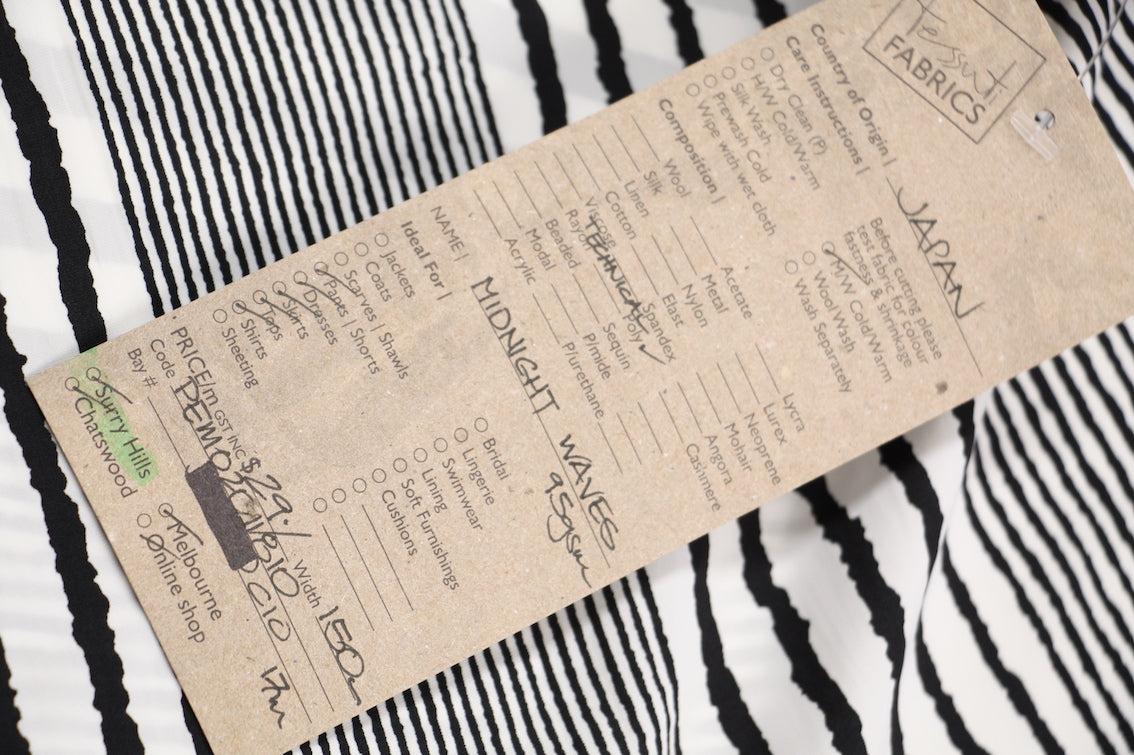 Tessuti
FABRICS
Country of Origin | JAPAN
Care Instructions |
Dry Clean (P)
H/W Cold/Warm
Silk Wash
Prewash Cold
Wipe with wet cloth
Before cutting please
test fabric for colour
fastness & shrinkage
M/W Cold/Warm
Wool Wash
Wash Separately
Composition |
Wool
Silk
Linen
Cotton
Viscose
Rayon
Beaded
Modal
Acrylic
Acetate
Metal
Nylon
Elast
Spandex
TECHNICAL Poly ✓
Sequin
P/mide
P/urethane
Lycra
Lurex
Neoprene
Mohair
Angora
Cashmere
NAME | MIDNIGHT WAVES
95gsm
Ideal For |
Jackets
Coats
Scarves | Shawls
Pants | Shorts
Dresses
Skirts
Tops
Shirts
Sheeting
Bridal
Lingerie
Swimwear
Lining
Soft Furnishings
Cushions
PRICE/m GST INC $29.- Width 150
Code
Bay #
C10 17m
Surry Hills
Chatswood
Melbourne
Online shop